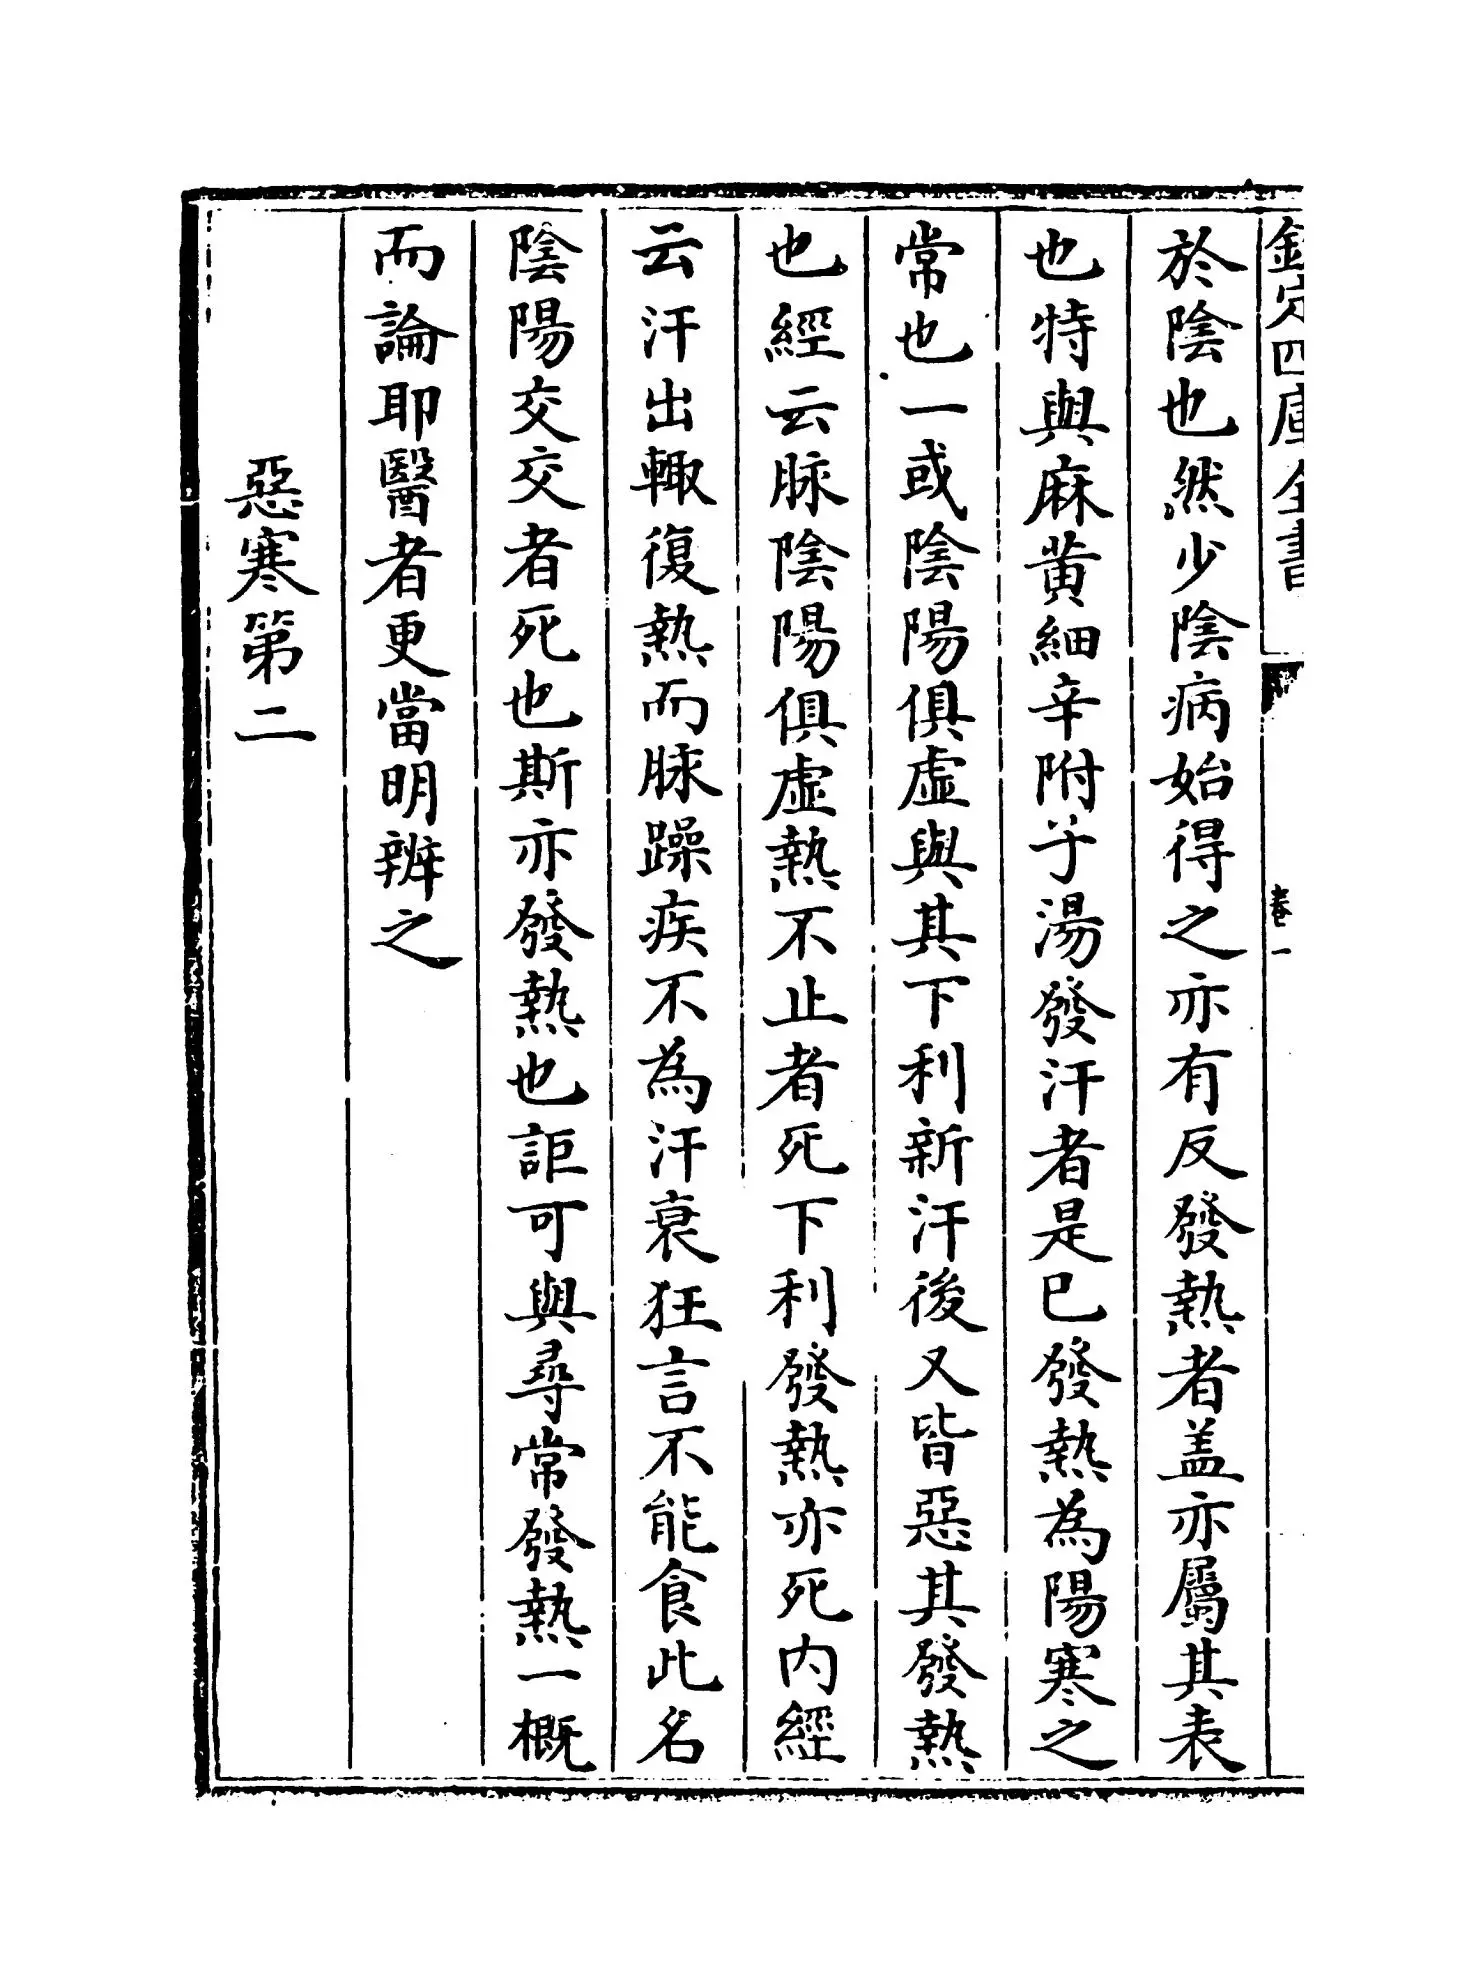 欽定四庫全書
卷一
於陰也然少陰病始得之亦有反發熱者盖亦屬其表
也特與麻黄細辛附子湯發汗者是已發熱為陽寒之
常也一或陰陽俱虚與其下利新汗後又皆惡其發熱
也經云脉陰陽俱虚熱不止者死下利發熱亦死内經
云汗出輙復熱而脉躁疾不為汗衰狂言不能食此名
陰陽交交者死也斯亦發熱也詎可與尋常發熱一概
而論耶醫者更當明辨之
惡寒第二